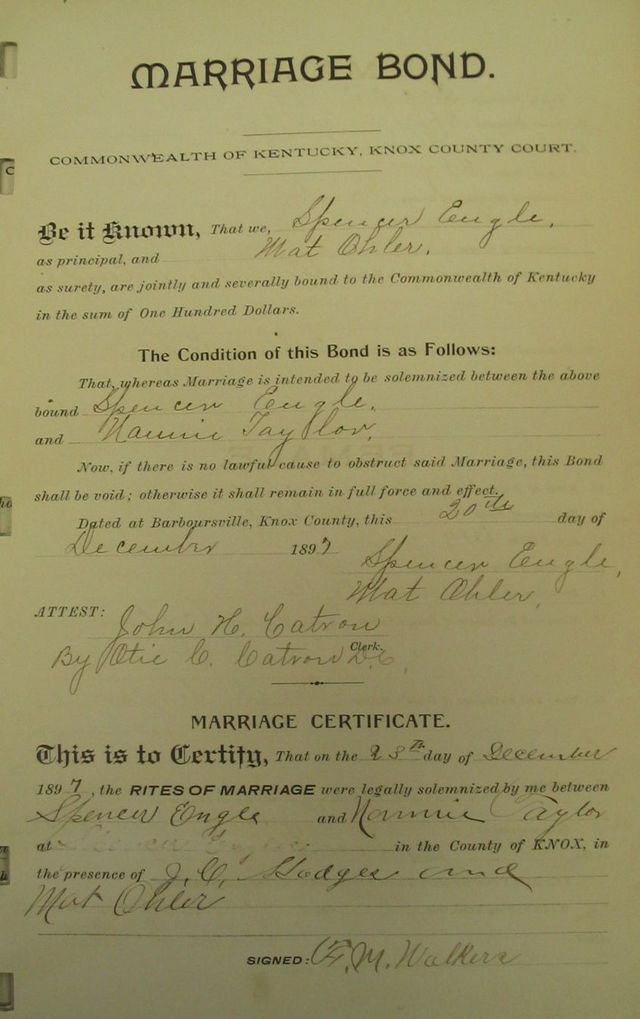 MARRIAGE BOND.
COMMONWEALTH OF KENTUCKY, KNOX COUNTY COURT.
Be it Known, That we, Spencer Engle,
as principal, and Mat Ohler,
as surety, are jointly and severally bound to the Commonwealth of Kentucky
in the sum of One Hundred Dollars.
The Condition of this Bond is as Follows:
That, whereas Marriage is intended to be solemnized between the above
bound Spencer Engle,
and Nannie Taylor,
Now, if there is no lawful cause to obstruct said Marriage, this Bond
shall be void; otherwise it shall remain in full force and effect.
Dated at Barboursville, Knox County, this 20th day of
December 1897
Spencer Engle,
Mat Ohler,
ATTEST:
John H. Catron
Clerk.
By Otie C. Catron D.C.
MARRIAGE CERTIFICATE.
This is to Certify, That on the 23th day of December
1897, the RITES OF MARRIAGE were legally solemnized by me between
Spencer Engle and Nannie Taylor
at Spencer in the County of KNOX, in
the presence of J. C. Hodges and
Mat Ohler
SIGNED: F. M. Walkers